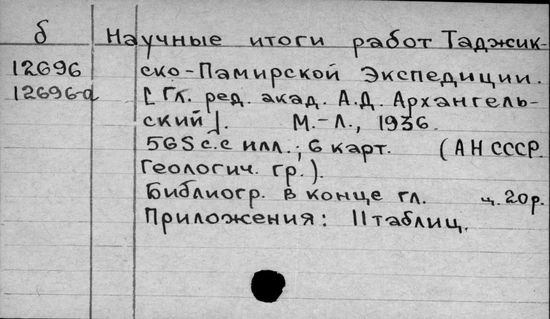 б Научные итоги работ Таджик-
12696 ско-Памирской Экспедиции.
12696-а [Гл. ред. акад. А.Д. Архангель-
ский]. М.-Л., 1936.
565 с. с илл.; 6 карт. (АН СССР.
Геологич. гр.).
Библиогр. в конце гл. ц. 20р.
Приложения: 11 таблиц.